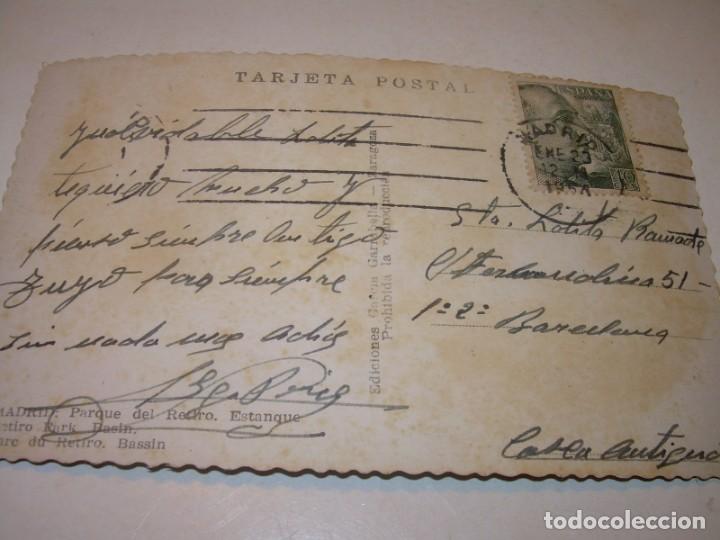 TARJETA POSTAL
Inolvidable Lolita
te quiero mucho y
pienso siempre en ti
tuyo para siempre
sin nada mas Adiós
MADRID: Parque del Retiro. Estanque
Retiro Park. Basin.
Parc du Retiro. Bassin
Ediciones García Garrabella — Zaragoza
Prohibida la reproducción
ESPAÑA
MADRID
ENE 23
Sta. Lolita
51 -
1º 2ª
Barcelona
todocoleccion.net